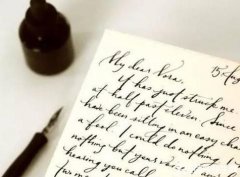 My dear Nora,
15 Aug
It has just struck me
at half past eleven. Since
have been sitting in an easy chair
a fool. I could do nothing. I
nothing but your voice. I am
hearing you call